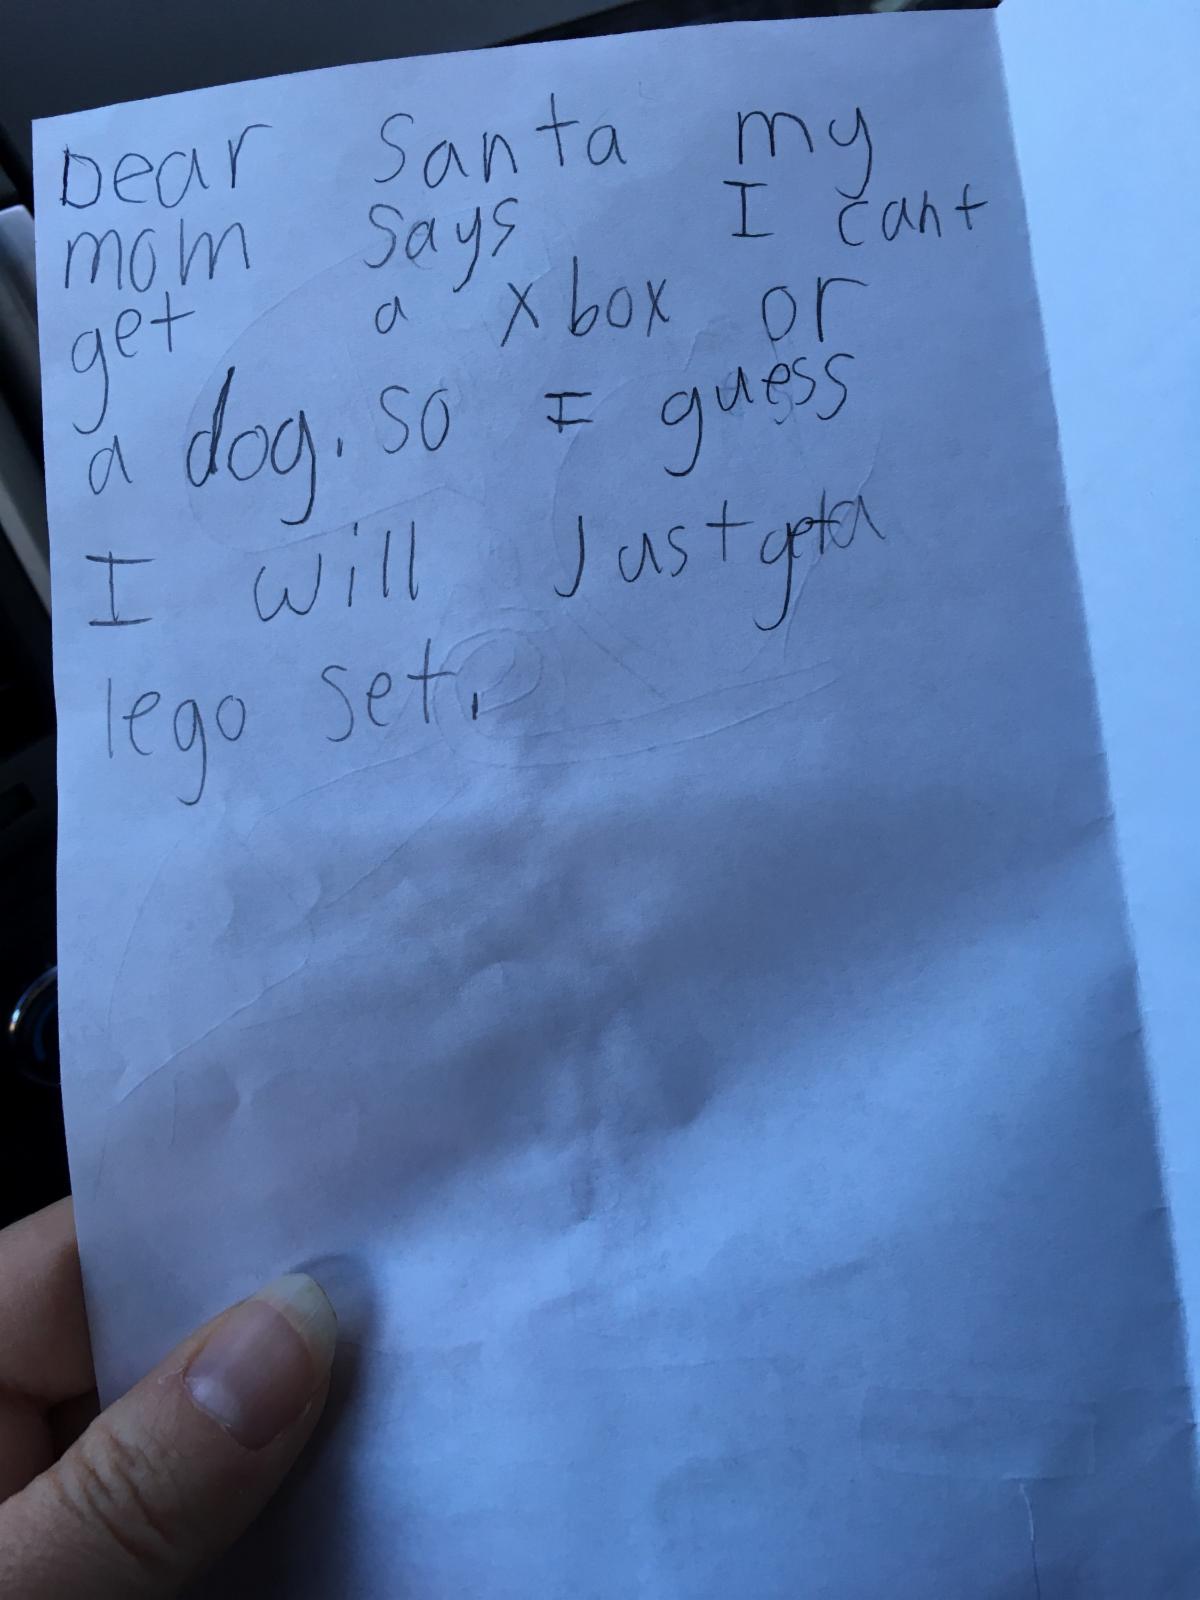 Dear Santa my
mom says I cant
get a xbox or
a dog. so I guess
I will Just get a
lego set.